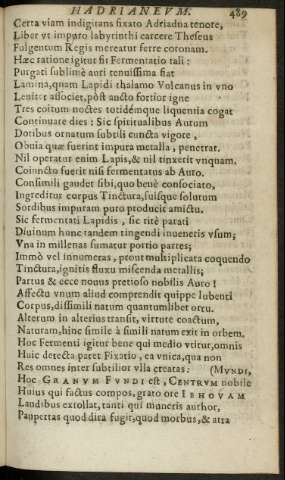 HADRIANEVM. 489
Certa viam indigitans fixato Adriadna tenore,
Liber vt impuro labyrinthi carcere Theseus
Fulgentum Regis mereatur ferre coronam.
Hæc ratione igitur fit Fermentatio tali:
Purgati sublimè auri tenuissima fiat
Lamina, quam Lapidi thalamo Vulcanus in vno
Leniter associet, pòst aucto fortior igne
Tres coitum noctes totidémque liquentia cogat
Continuare dies: Sic spiritualibus Aurum
Dotibus ornatum subuli cuncta vigore,
Obuia quæ fuerint impura metalla, penetrat.
Nil operatur enim Lapis, & nil tinxerit vnquam.
Coiuncto fuerit nisi fermentatus ab Auro.
Consimili gaudet sibi, quo bevè consociato,
Ingreditur corpus Tinctura, suisque solutum
Sordibus impurum puro producit amictu.
Sic fermentati Lapidis, sic ritè parati
Diuinum hunc tandem tingendi inueneris vsum;
Vna in millenas sumatur portio partes;
Immò vel innumeras, prout multiplicata coquendo
Tinctura, ignitis fluxu miscenda metallis;
Partus & ecce nouus pretioso nobilis Auro!
Affectu vnum aliud comprendit quippe lubenti
Corpus, dissimili natum quantumlibet ortu.
Alterum in alterius transit, virtute coactum,
Naturam, hinc simile à simili natum exit in orbem.
Hoc Fermenti igitur bene qui medio vtitur, omnis
Huic detecta patet Fixatio, ea vnica, qua non
Res omnes inter subtilior vlla creatas: (MVNDI,
Hoc GRANVM FVNDI est, CENTRVM nobile
Huius qui factus compos, grato ore IEHOVAM
Laudibus extollat, tanti qui muneris author,
Paupertas quod dira fugit, quod morbus, & atra